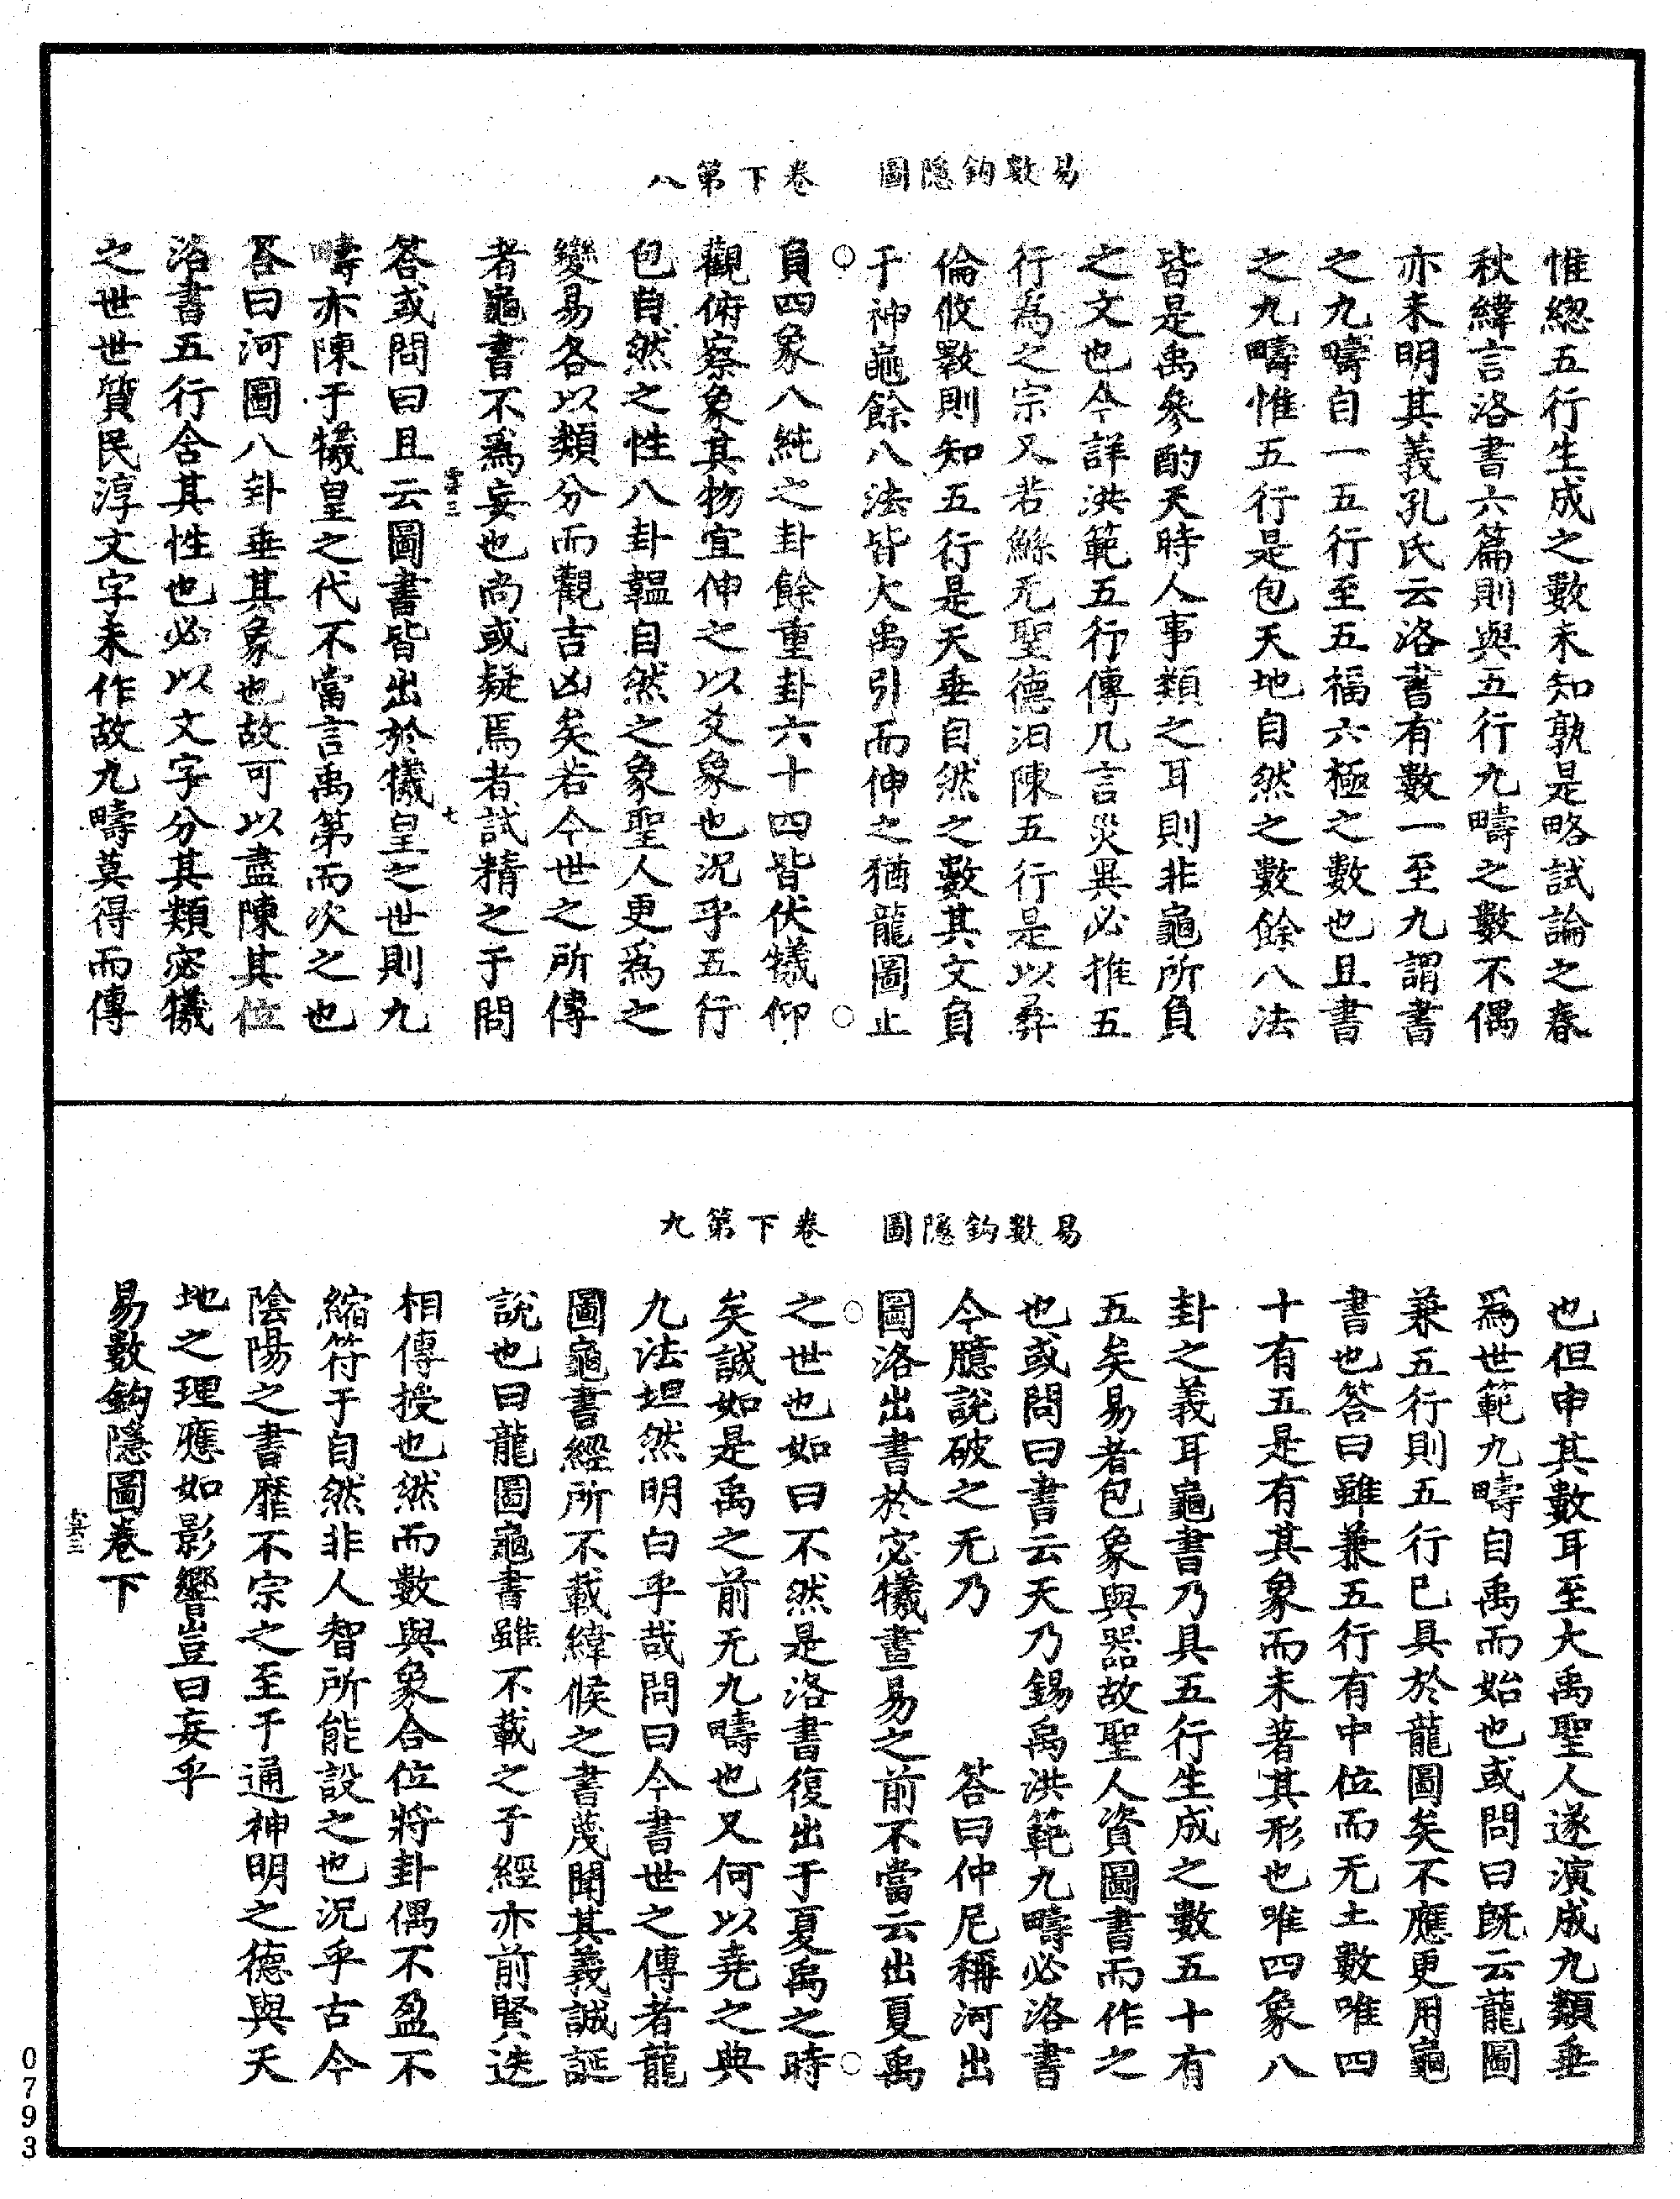 易數鈎隱圖　卷下第八
惟緫五行生成之數未知孰是略試論之春
秋緯言洛書六篇則與五行九疇之數不偶
亦未明其義孔氏云洛書有數一至九謂書
之九疇自一五行至五福六極之數也且書
之九疇惟五行是包天地自然之數餘八法
皆是禹參酌天時人事類之耳則非龜所負
之文也今詳洪範五行傳凡言災異必推五
行為之宗又若鯀无聖德汩陳五行是以彛
倫攸斁則知五行是天垂自然之數其文負
于神龜餘八法皆大禹引而伸之猶龍圖止
負四象八純之卦餘重卦六十四皆伏犧仰
觀俯察象其物宜伸之以爻象也況乎五行
包自然之性八卦韞自然之象聖人更爲之
變易各以類分而觀吉凶矣若今世之所傳
者龜書不爲妄也尚或疑焉者試精之于問
答或問曰且云圖書皆出於犧皇之世則九
疇亦陳于犧皇之代不當言禹第而次之也
荅曰河圖八卦垂其象也故可以盡陳其位
洛書五行含其性也必以文字分其類宓犧
之世世質民淳文字未作故九疇莫得而傳
易數鈎隱圖　卷下第九
也但申其數耳至大禹聖人遂演成九類垂
爲世範九疇自禹而始也或問曰旣云龍圖
兼五行則五行已具於龍圖矣不應更用龜
書也答曰雖兼五行有中位而无土數唯四
十有五是有其象而未著其形也唯四象八
卦之義耳龜書乃具五行生成之數五十有
五矣易者包象與器故聖人資圖書而作之
也或問曰書云天乃錫禹洪範九疇必洛書
今臆說破之无乃　　　答曰仲尼稱河出
圖洛出書於宓犧畫易之前不當云出夏禹
之世也如曰不然是洛書復出于夏禹之時
矣誠如是禹之前无九疇也又何以堯之典
九法坦然明白乎哉問曰今書世之傳者龍
圖龜書經所不載緯候之書蔑聞其義誠誕
說也曰龍圖龜書雖不載之于經亦前賢迭
相傳授也然而數與象合位將卦偶不盈不
縮符于自然非人智所能設之也況乎古今
陰陽之書靡不宗之至于通神明之德與天
地之理應如影響豈曰妄乎
易數鈎隱圖卷下
0793